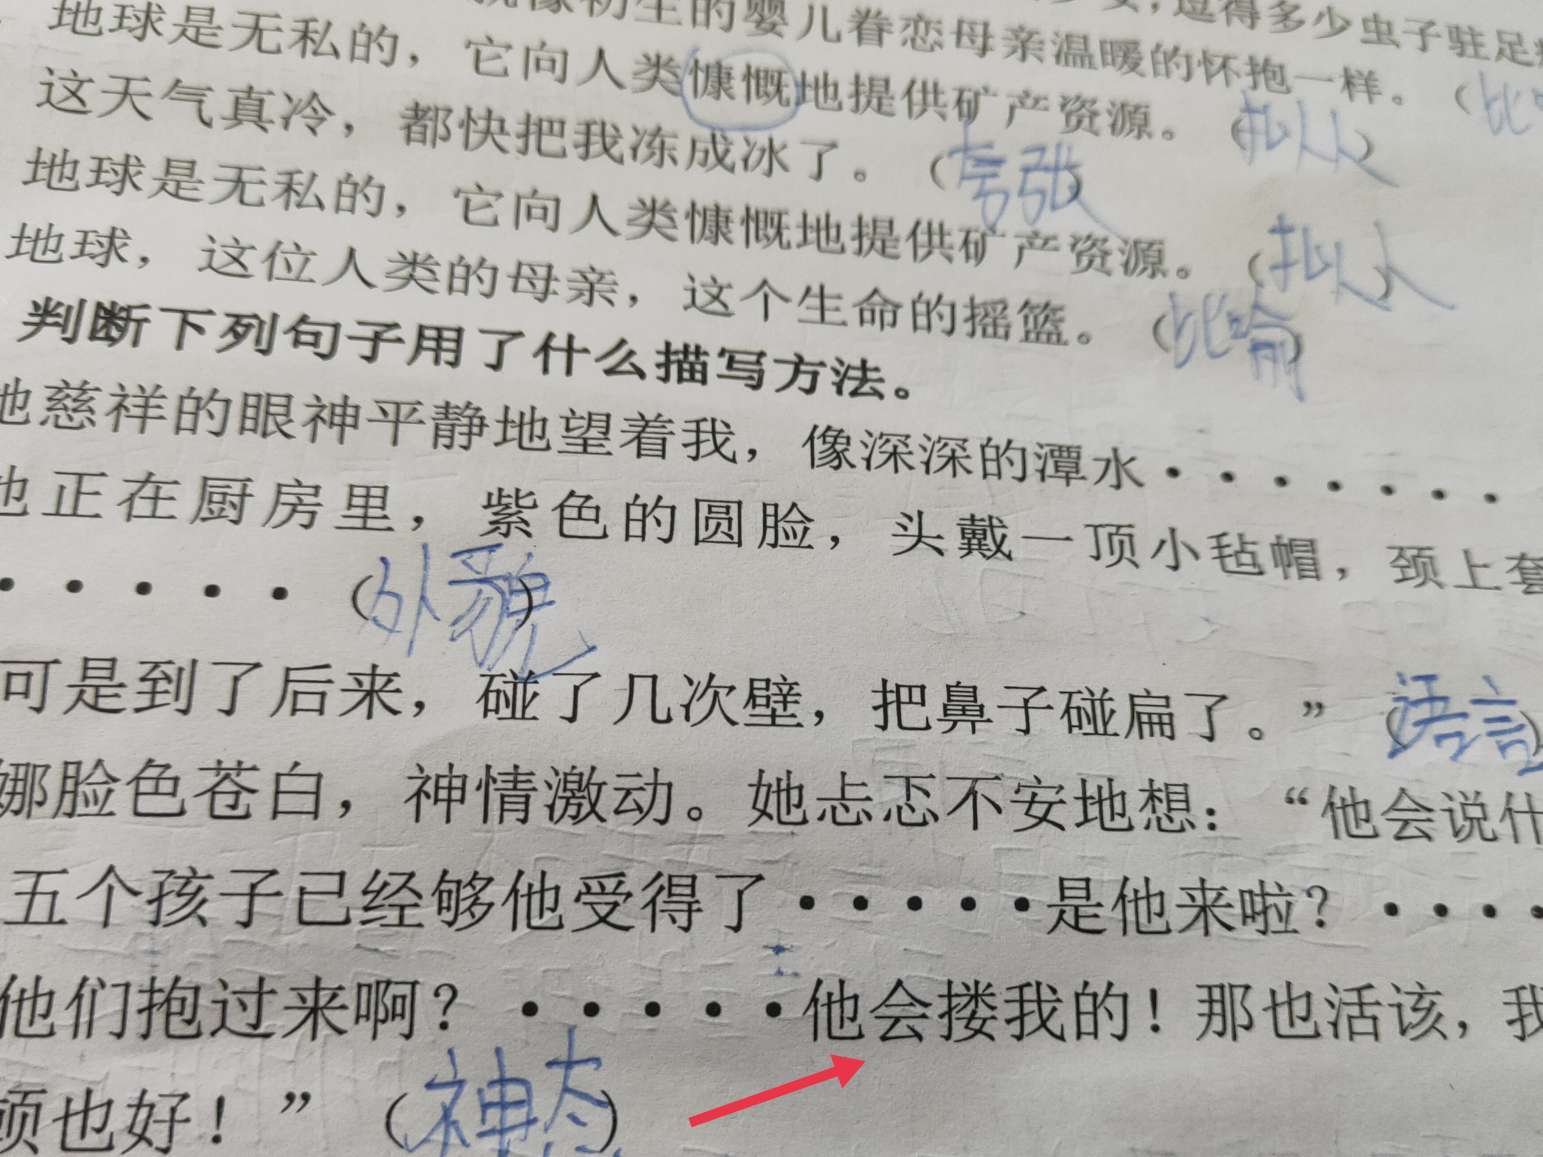 就像初生的婴儿眷恋母亲温暖的怀抱一样。（比
，逗得多少虫子驻足
地球是无私的，它向人类慷慨地提供矿产资源。（拟人）
这天气真冷，都快把我冻成冰了。（夸张）
地球是无私的，它向人类慷慨地提供矿产资源。（拟人）
地球，这位人类的母亲，这个生命的摇篮。（比喻）
判断下列句子用了什么描写方法。
他慈祥的眼神平静地望着我，像深深的潭水·······
他正在厨房里，紫色的圆脸，头戴一顶小毡帽，颈上套
·····（外貌）
可是到了后来，碰了几次壁，把鼻子碰扁了。”（语言）
娜脸色苍白，神情激动。她忐忑不安地想：“他会说什
五个孩子已经够他受得了·····是他来啦？····
他们抱过来啊？·····他会搂我的！那也活该，我
顿也好！”（神态）